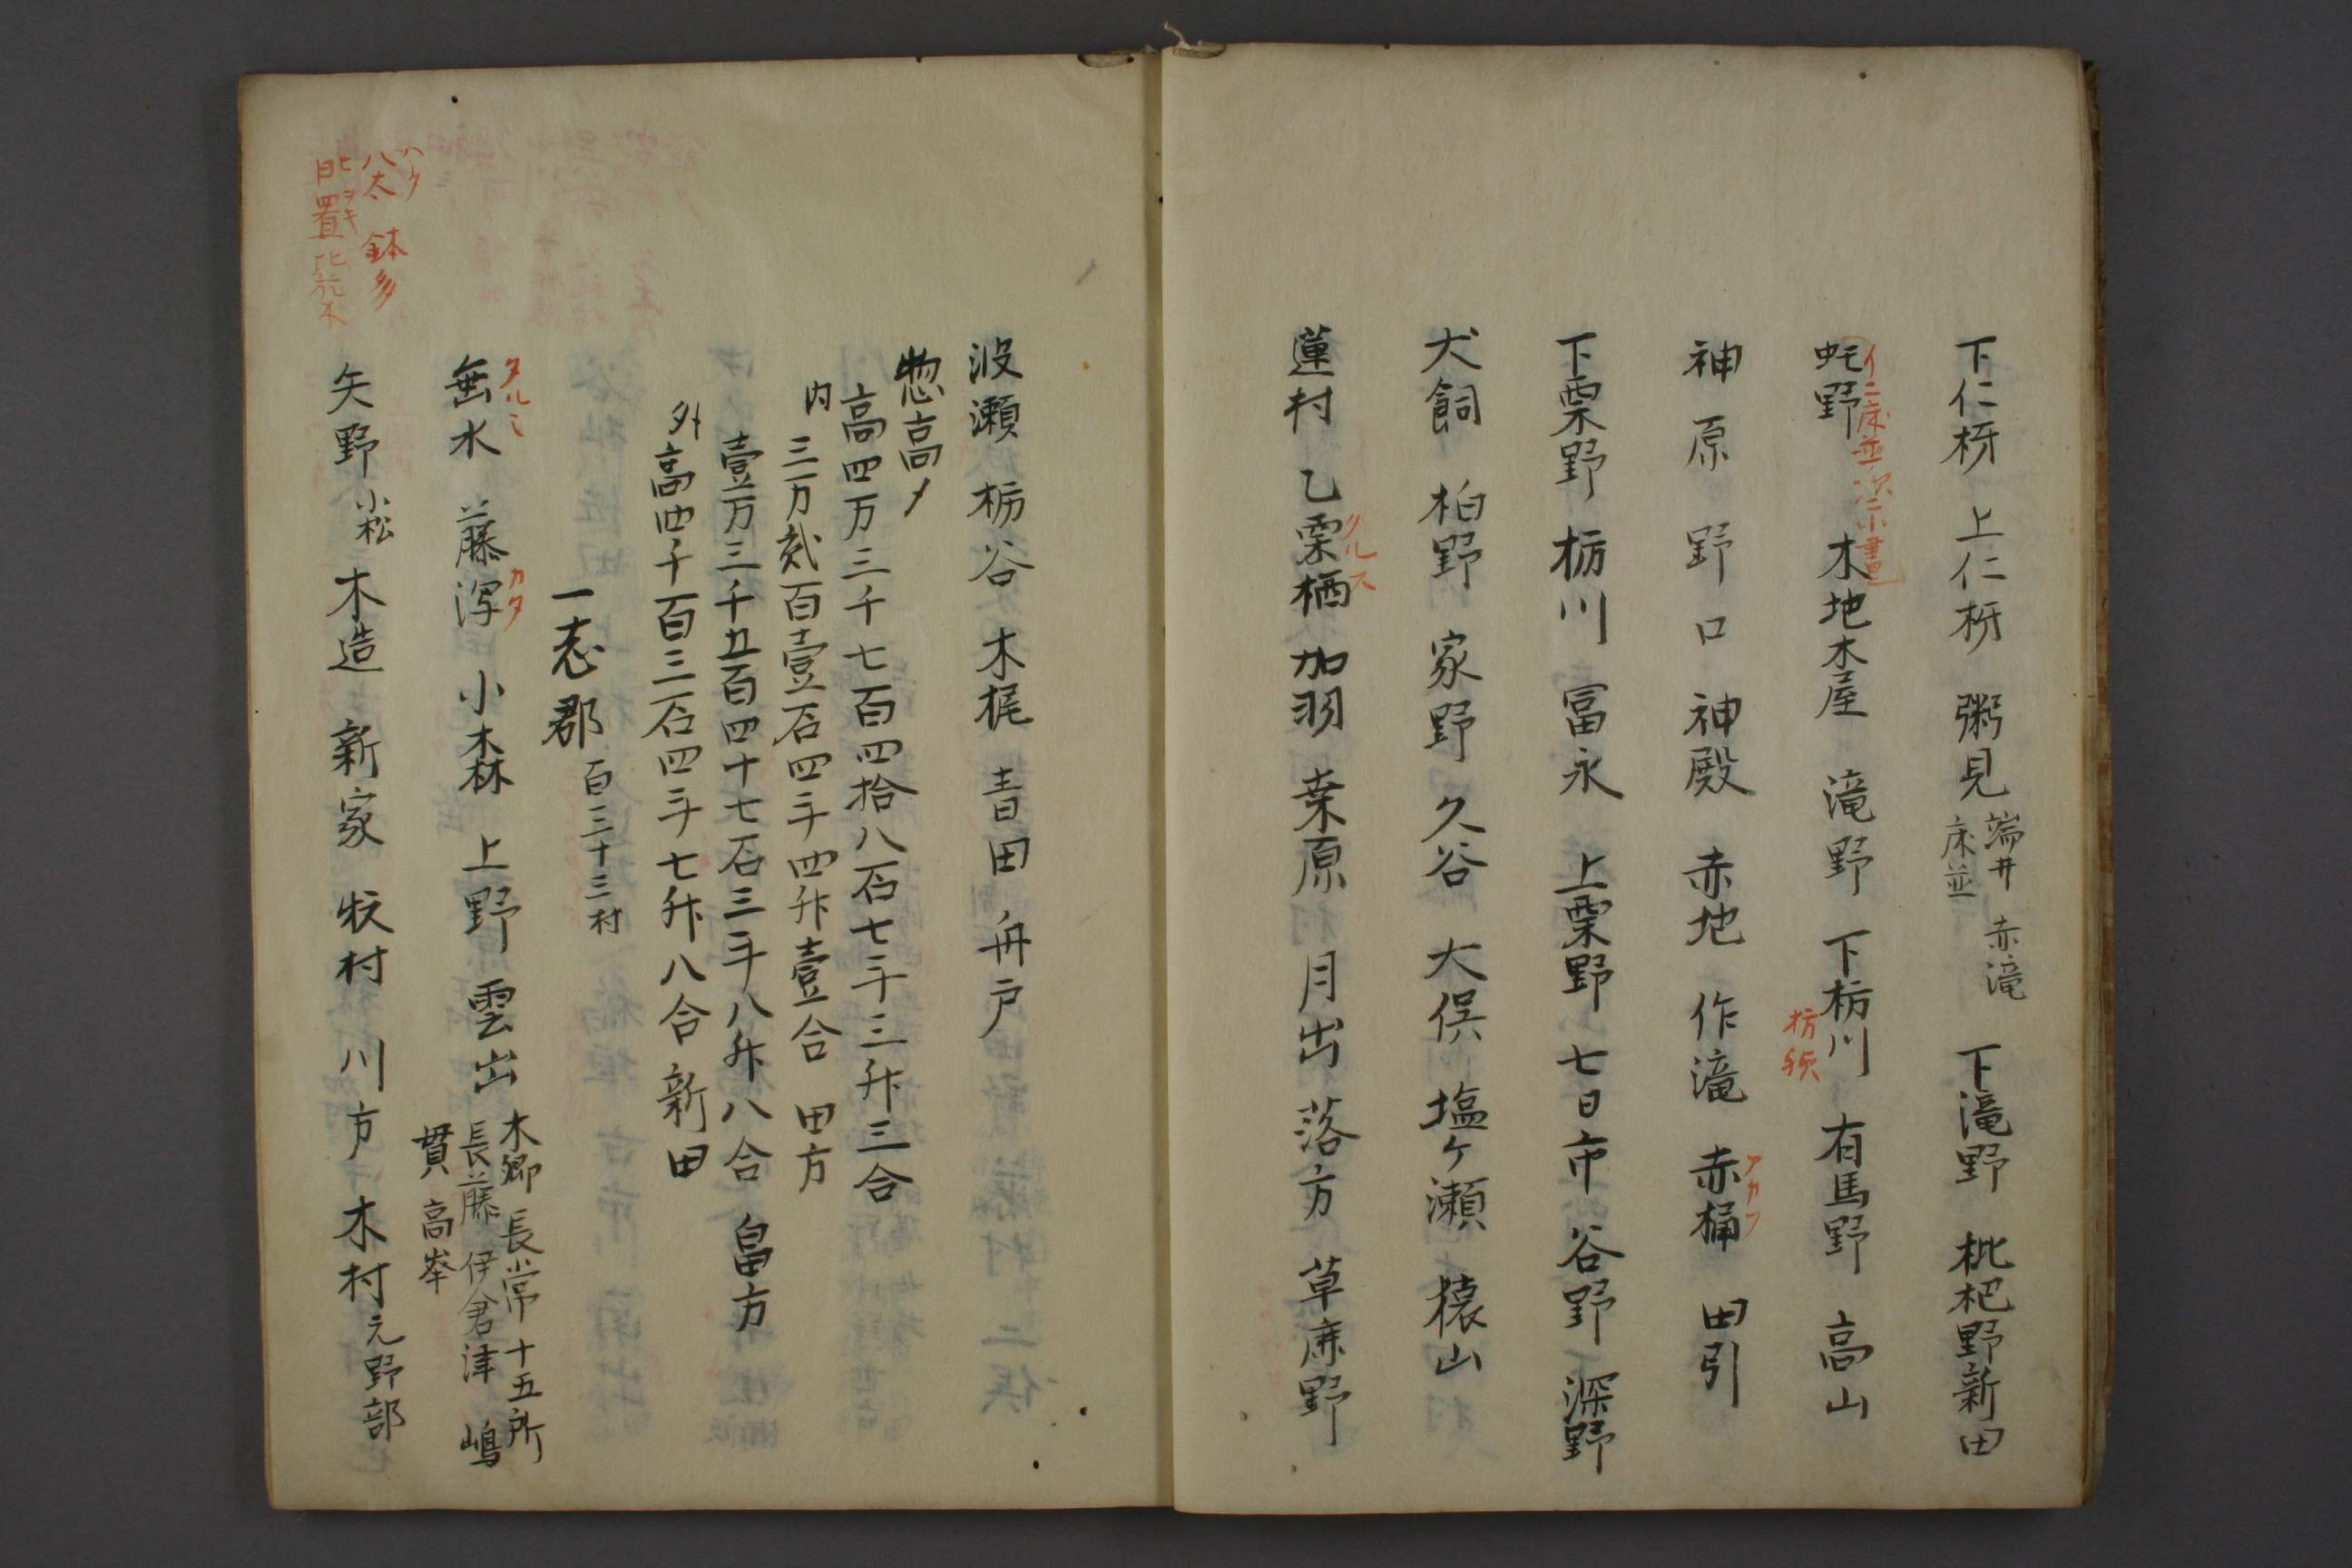 下仁柹 上仁柹 粥見 端井 赤滝 床並 下滝野 枇杷野新田
虵野 木地木屋 滝野 下栃川 有馬野 高山
イニ床並次ニ小書
神原 野口 神殿 赤地 作滝 赤桶 田引
アカフ
下栗野 栃川 冨永 上栗野 七日市 谷野 深野
犬飼 柏野 家野 久谷 大俣 塩ケ瀬 猿山
蓮村 乙栗栖 加羽 桒原 月出 落方 草鹿野
クルス
波瀬 栃谷 木梶 青田 舟戸
惣高〆
高四万三千七百四拾八石七斗三升三合
内
三万貳百壹石四斗四升壹合 田方
壹万三千五百四十七石三斗八升八合 畠方
外高四千百三石四斗七升八合 新田
一志郡 百三十三村
垂水 藤潟 小森 上野 雲出 本郷 長常 十五所
タルミ カタ
長藤 伊倉津 嶋
貫 高峯
矢野 小松 木造 新家 牧村 川方 木村 元野部
ハタ
八太 鉢多
ヒヲキ
日置